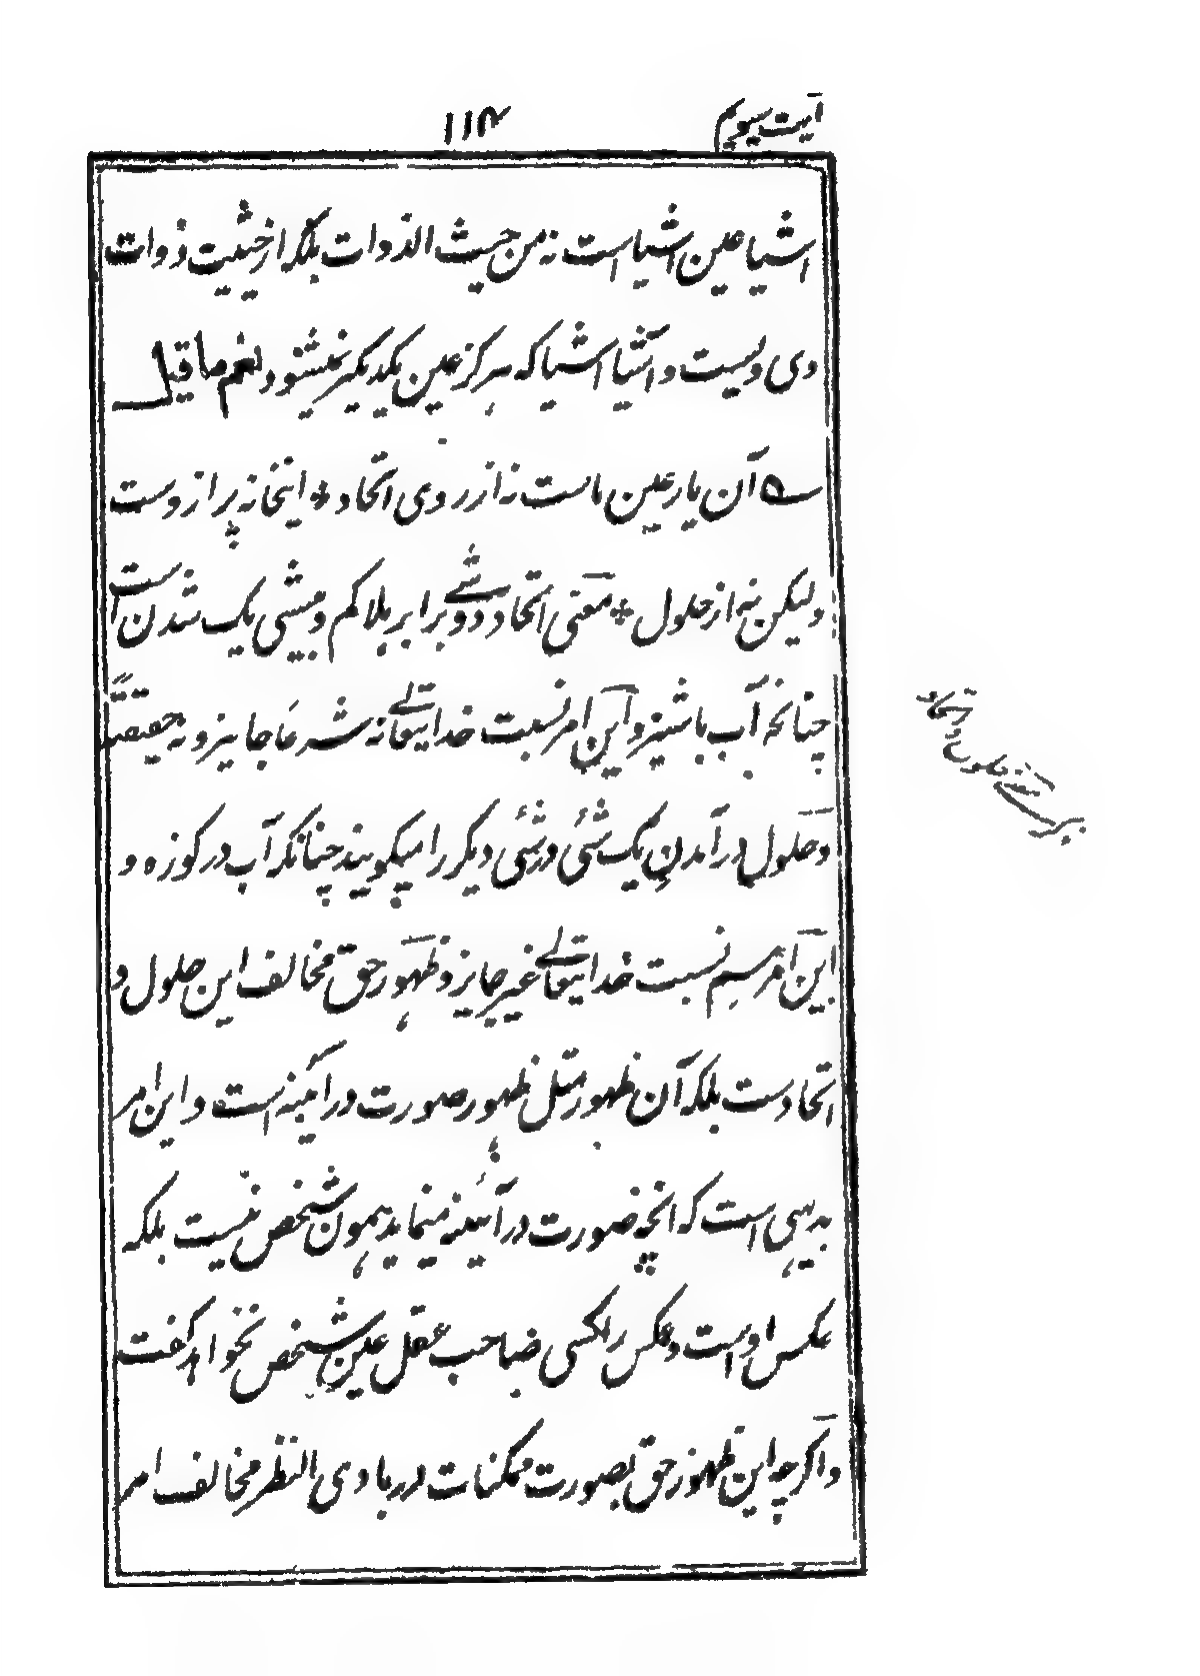 آیت سیویم
۱۱۴
اشیا عین اشیا است نه من حیث الذوات بلکه از حیثیت ذوات
دی ویست و اشیا اشیا که هرگز عین یکدیگر نمیشنود و لنعم ما قیل
آن یار عین ماست نه از روی اتحاد * اینخانه پر از وست
ولیکن نه از حلول * معنی اتحاد دو شے برابر بلا کم و بیشی یک شدن است
چنانچه آب باشیر و این امر نسبت خدایتعالے نه شرعًا جایز و نه حقیقتًا
و حلول در آمدنِ یک شئ در شئ دیگر را میگویند چنانکه آب در کوزه و
این امر سیم نسبت خدایتعالے غیر جایز و ظهور حق مخالف این حلول و
اتحادست بلکه آن ظهور مثل ظهور صورت در آئینه است و این امر
بدیهی است که انچه صورت در آئینه مینماید همون شخص نیست بلکه
عکس اوست و عکس را کسی صاحب عقل عین شخص نخواهد گفت
و اگرچه این ظهور حق بصورت ممکنات در بادی النظر مخالف امر
اتحاد
حلول